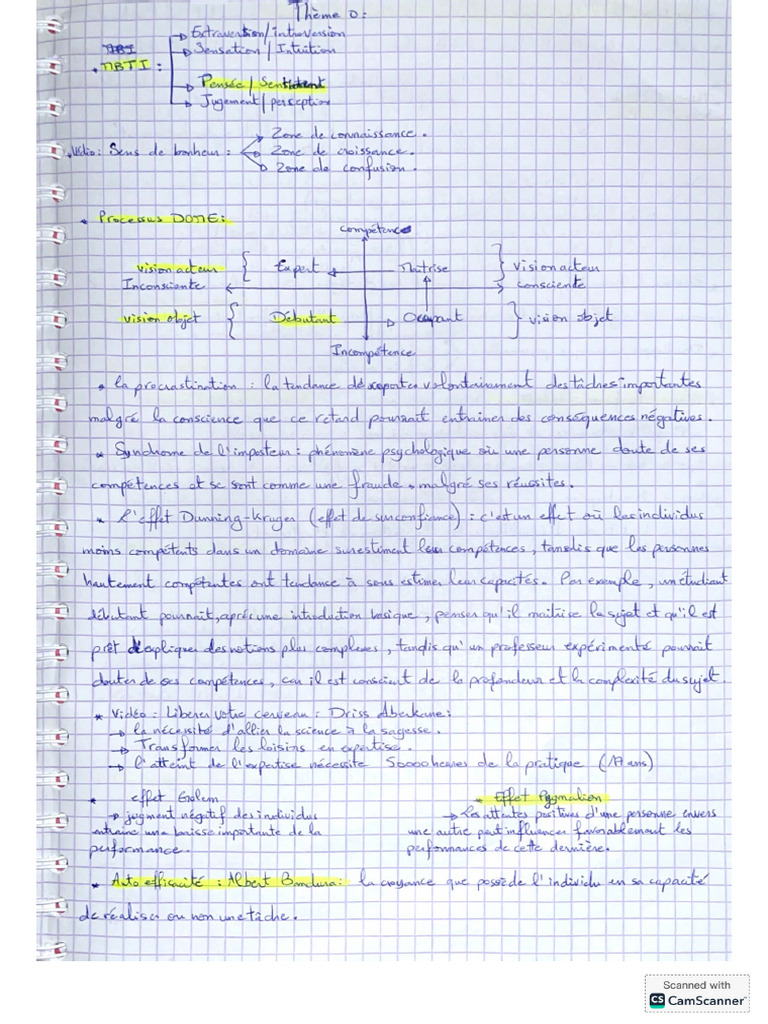 Thème 0:
→ Extraversion/introversion
→ Sensation / Intuition
• MBTI :
→ Pensée / Sentiment
→ Jugement / perception
→ Zone de connaissance.
• Vidéo: Sens de bonheur : → Zone de croissance.
→ Zone de confusion.
• Processus DOME:
Compétence
vision acteur { Expert ← Maitrise } Vision acteur
Inconsciente consciente
vision objet { Débutant → Occupant } vision objet
Incompétence
• la procrastination : la tendance de reporter volontairement des tâches importantes
malgré la conscience que ce retard pourrait entrainer des conséquences négatives.
• Syndrome de l'imposteur : phénomène psychologique où une personne doute de ses
compétences et se sont comme une fraude, malgré ses réussites.
• L'effet Dunning-Kruger (effet de surconfiance) : c'est un effet où les individus
moins compétents dans un domaine surestiment leur compétences, tandis que les personnes
hautement compétantes ont tendance à sous estimer leur capacités. Par exemple, un étudiant
débutant pourrait, après une introduction basique, penser qu'il maitrise le sujet et qu'il est
prêt d'expliquer des notions plus complexes, tandis qu'un professeur expérimenté pourrait
douter de ses compétences, car il est conscient de la profondeur et la complexité du sujet.
• Vidéo : Libérer votre cerveau : Driss Aberkane:
→ la nécessité d'allier la science à la sagesse.
→ Transformer les loisirs en expertise.
→ l'atteint de l'expertise nécessite 50000 heures de la pratique (17 ans)
• effet Golem
→ jugment négatif des individus
entraine une baisse importante de la
performance.
• Effet Pygmalion
→ Les attentes positives d'une personne envers
une autre peut influencer favorablement les
performances de cette dernière.
• Auto efficacité : Albert Bandura: la croyance que possède l'individu en sa capacité
de réaliser ou non une tâche.
Scanned with
CS CamScanner